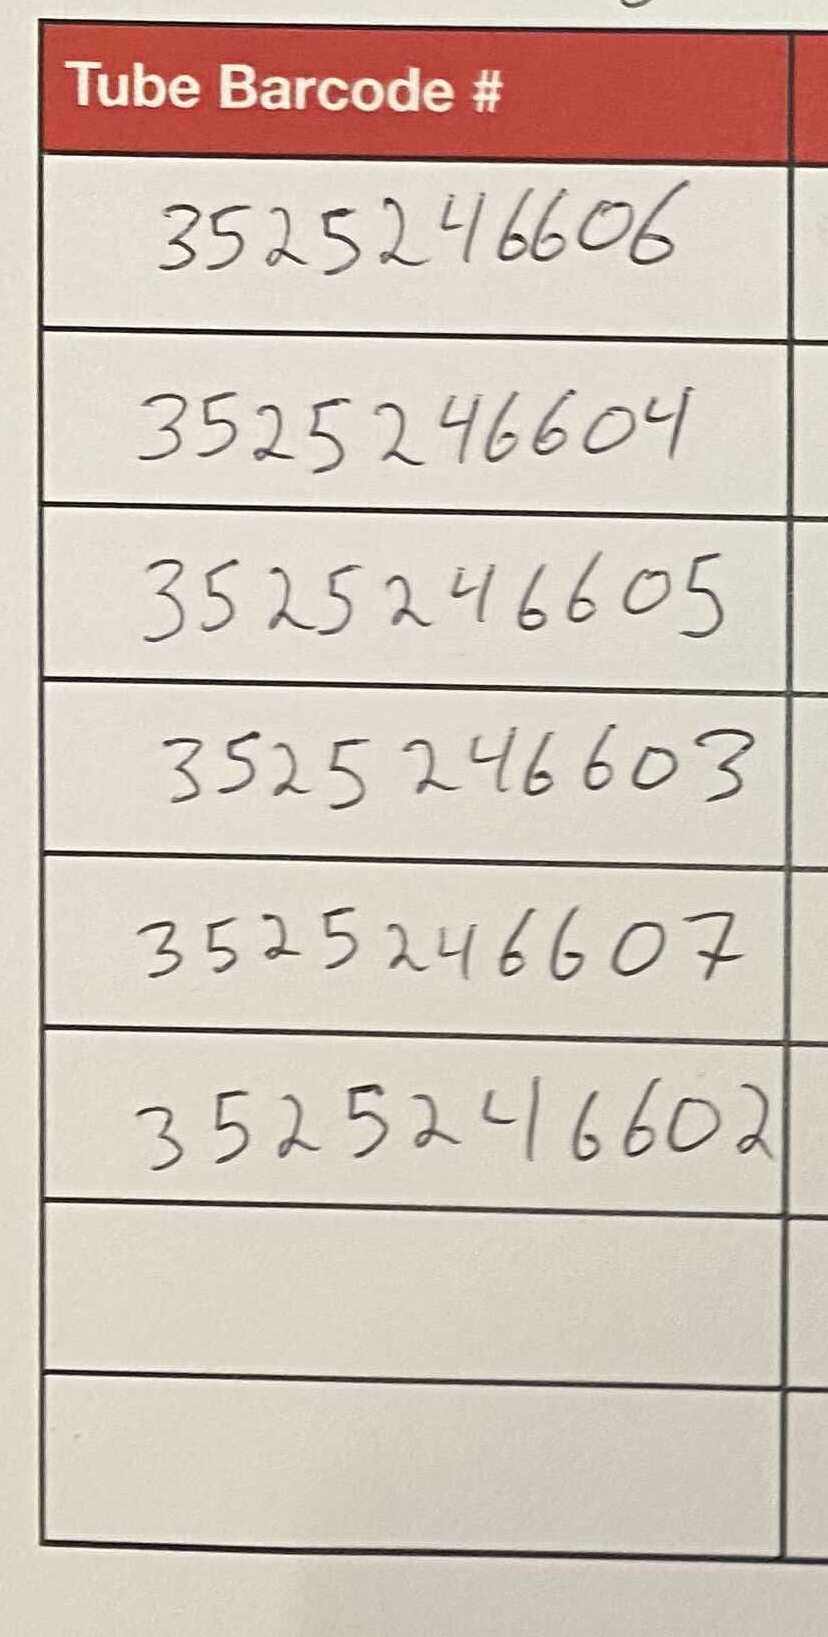 Tube Barcode #
3525246606
3525246604
3525246605
3525246603
3525246607
3525246602